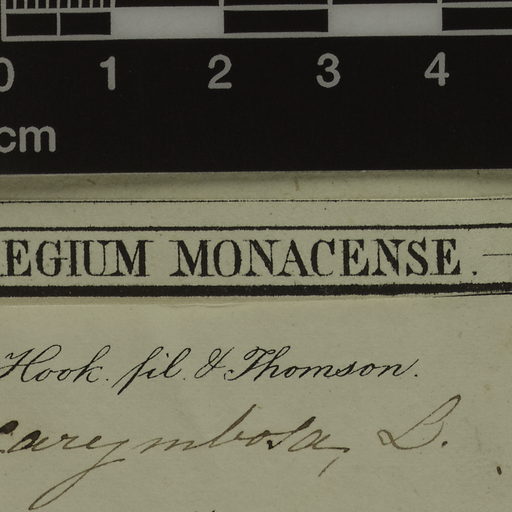 0 1 2 3 4
cm
EGIUM MONACENSE.
Hook. fil. & Thomson.
L.